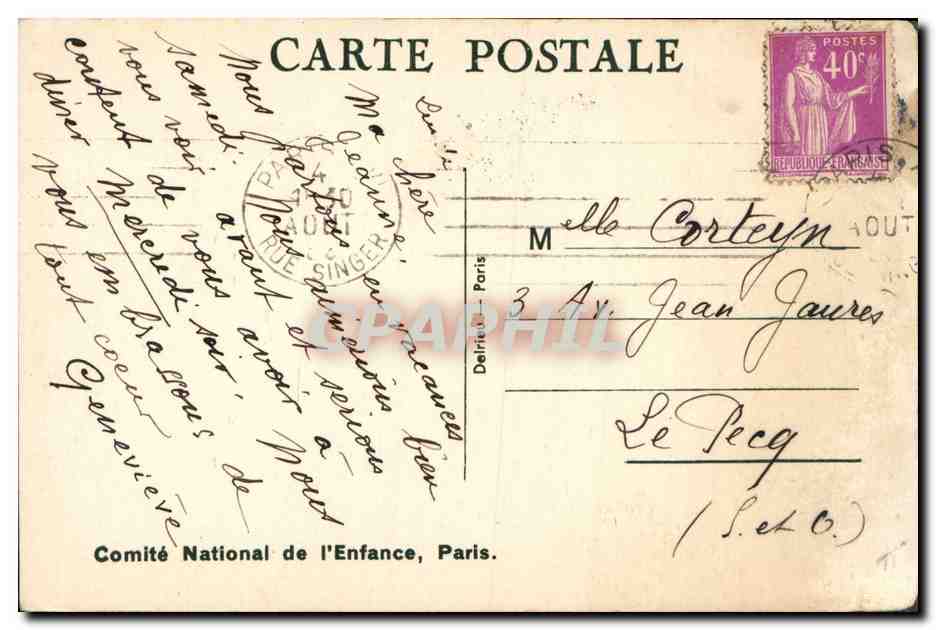 CARTE POSTALE
POSTES
40c
REPUBLIQUE FRANÇAISE
PARIS
AOUT
RUE SINGER
AOUT
Lundi
Ma chère
Jeanne
Nous partons en vacances
samedi. Nous aimerions bien
vous voir avant et serions
content de vous avoir à
dîner Mercredi soir. Nous
vous embrassons de
tout coeur
Geneviève
Melle Corteyn
3 Av. Jean Jaures
Le Pecq
(S. et O.)
Delrieu - Paris
Comité National de l'Enfance, Paris.
CPAPHIL